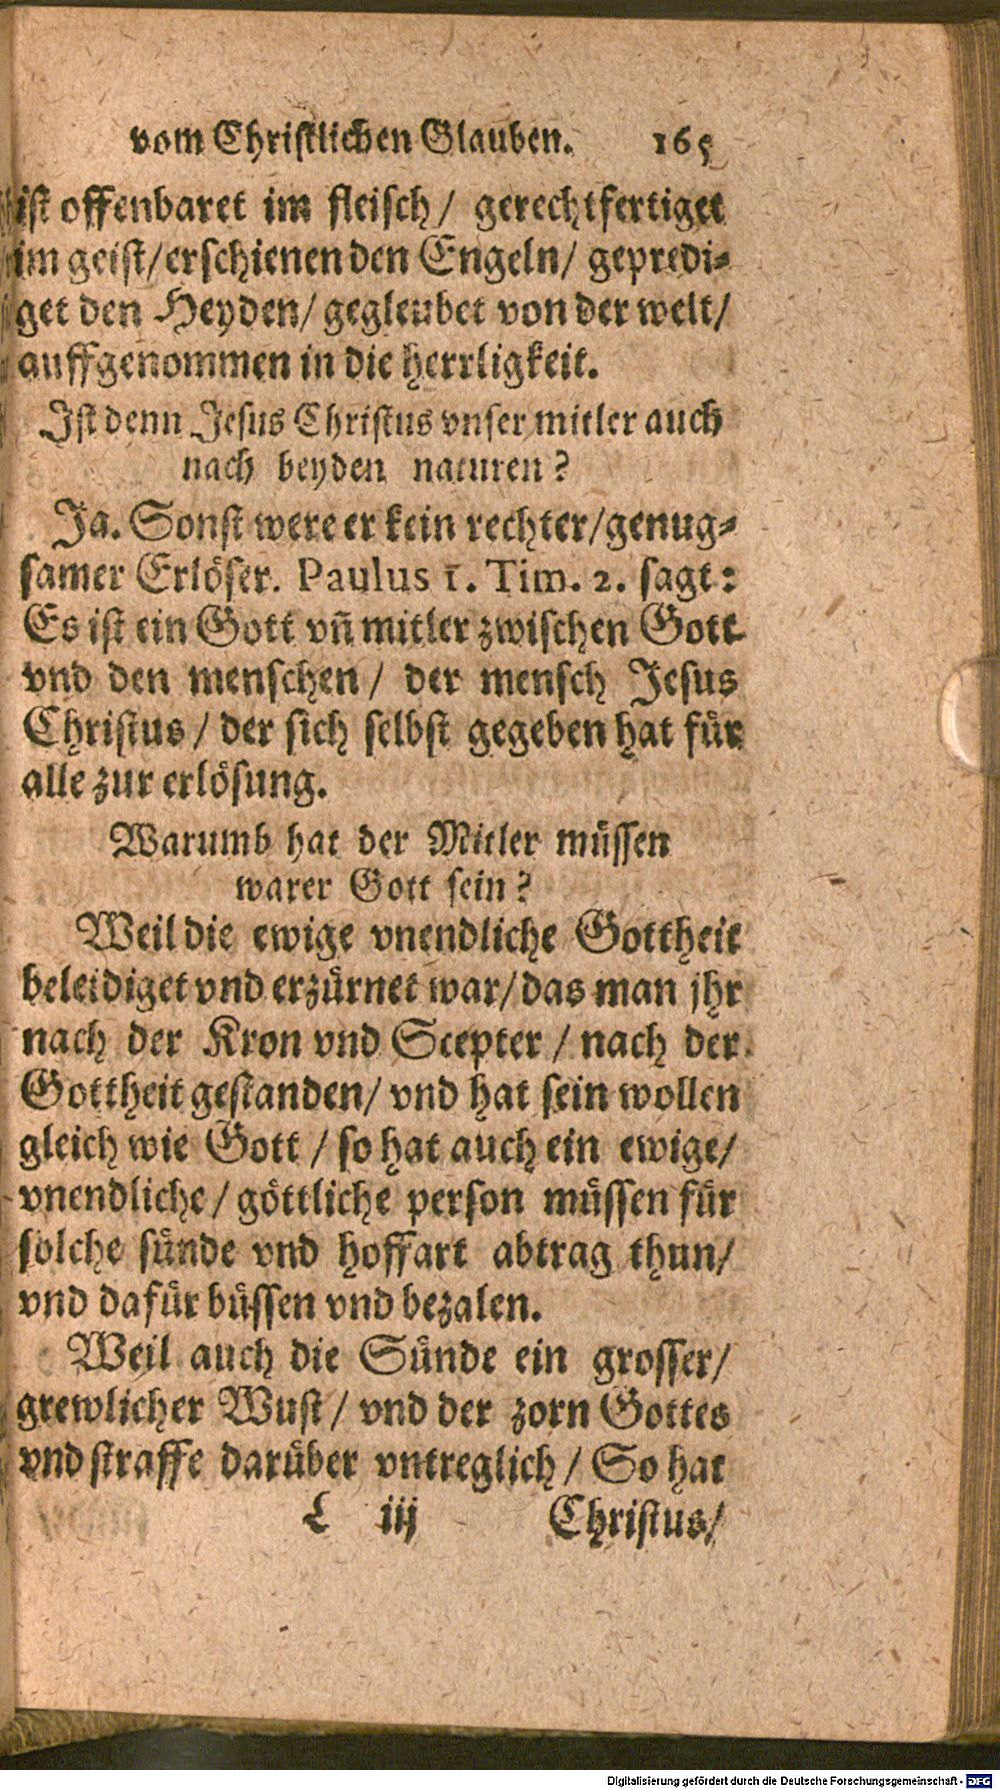 vom Christlichen Glauben. 165
ist offenbaret im fleisch/ gerechtfertiget
im geist/erschienen den Engeln/ gepredi-
get den Heyden/ gegleubet von der welt/
auffgenommen in die herrligkeit.
Ist denn Jesus Christus vnser mitler auch
nach beyden naturen?
Ja. Sonst were er kein rechter/genug-
samer Erlöser. Paulus 1. Tim. 2. sagt:
Es ist ein Gott vñ mitler zwischen Gott
vnd den menschen/ der mensch Jesus
Christus/ der sich selbst gegeben hat für
alle zur erlösung.
Warumb hat der Mitler müssen
warer Gott sein?
Weil die ewige vnendliche Gottheit
beleidiget vnd erzürnet war/das man jhr
nach der Kron vnd Scepter/ nach der
Gottheit gestanden/ vnd hat sein wollen
gleich wie Gott/ so hat auch ein ewige/
vnendliche/ göttliche person müssen für
solche sünde vnd hoffart abtrag thun/
vnd dafür büssen vnd bezalen.
Weil auch die Sünde ein grosser/
grewlicher Wust/ vnd der zorn Gottes
vnd straffe darüber vntreglich/ So hat
L iij Christus/
Digitalisierung gefördert durch die Deutsche Forschungsgemeinschaft - DFG